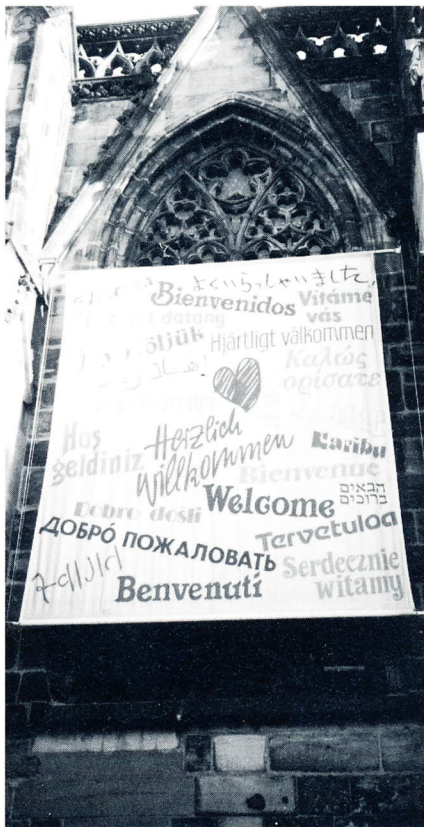 よくいらっしゃいました。
Bienvenidos
Vítáme
vás
datang
Hjärtligt välkommen
Καλώς
ορίσατε
Hoş
geldiniz
Herzlich
willkommen
Karibu
Bienvenue
Welcome
הבאים
ברוכים
Dobro došli
ДОБРÓ ПОЖАЛОВАТЬ
Tervetuloa
Serdecznie
witamy
Benvenuti